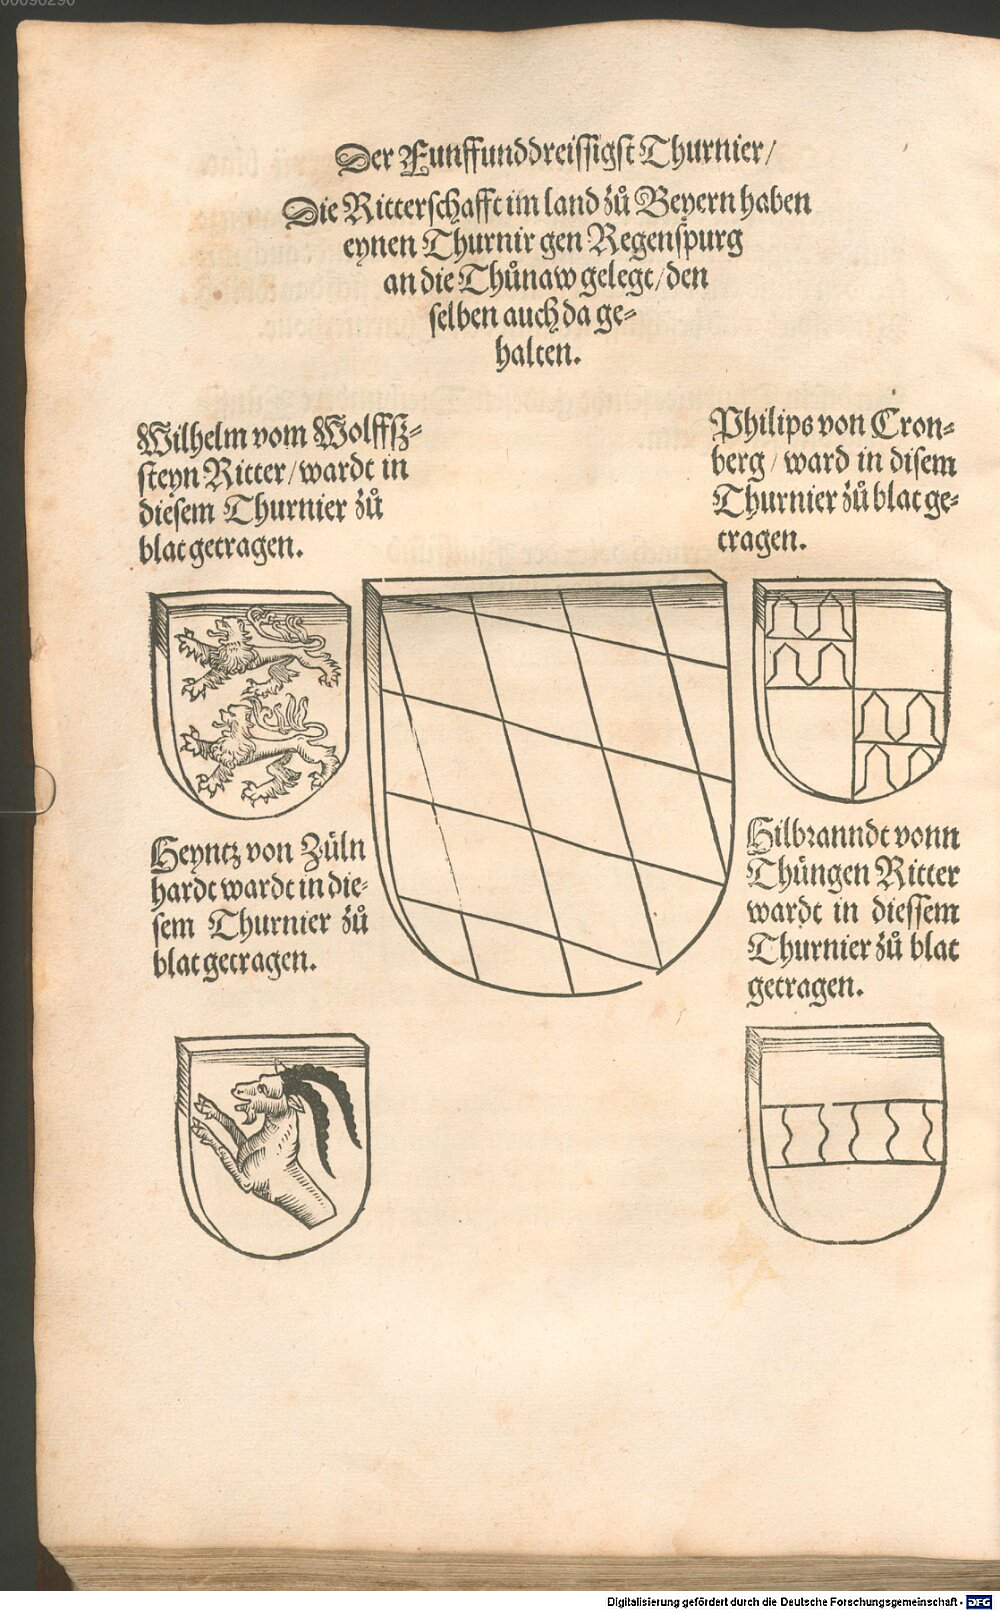 Der Funffunddreissigst Thurnier/
Die Ritterschafft im land zů Beyern haben
eynen Thurnir gen Regenspurg
an die Thůnaw gelegt/den
selben auch da ge-
halten.
Wilhelm vom Wolffsz-
steyn Ritter/wardt in
diesem Thurnier zů
blat getragen.
Philips von Cron-
berg/ward in disem
Thurnier zů blat ge-
tragen.
Heyntz von Zuln
hardt wardt in die-
sem Thurnier zů
blat getragen.
Hilbranndt vonn
Thüngen Ritter
wardt in diessem
Thurnier zů blat
getragen.
Digitalisierung gefördert durch die Deutsche Forschungsgemeinschaft - DFG